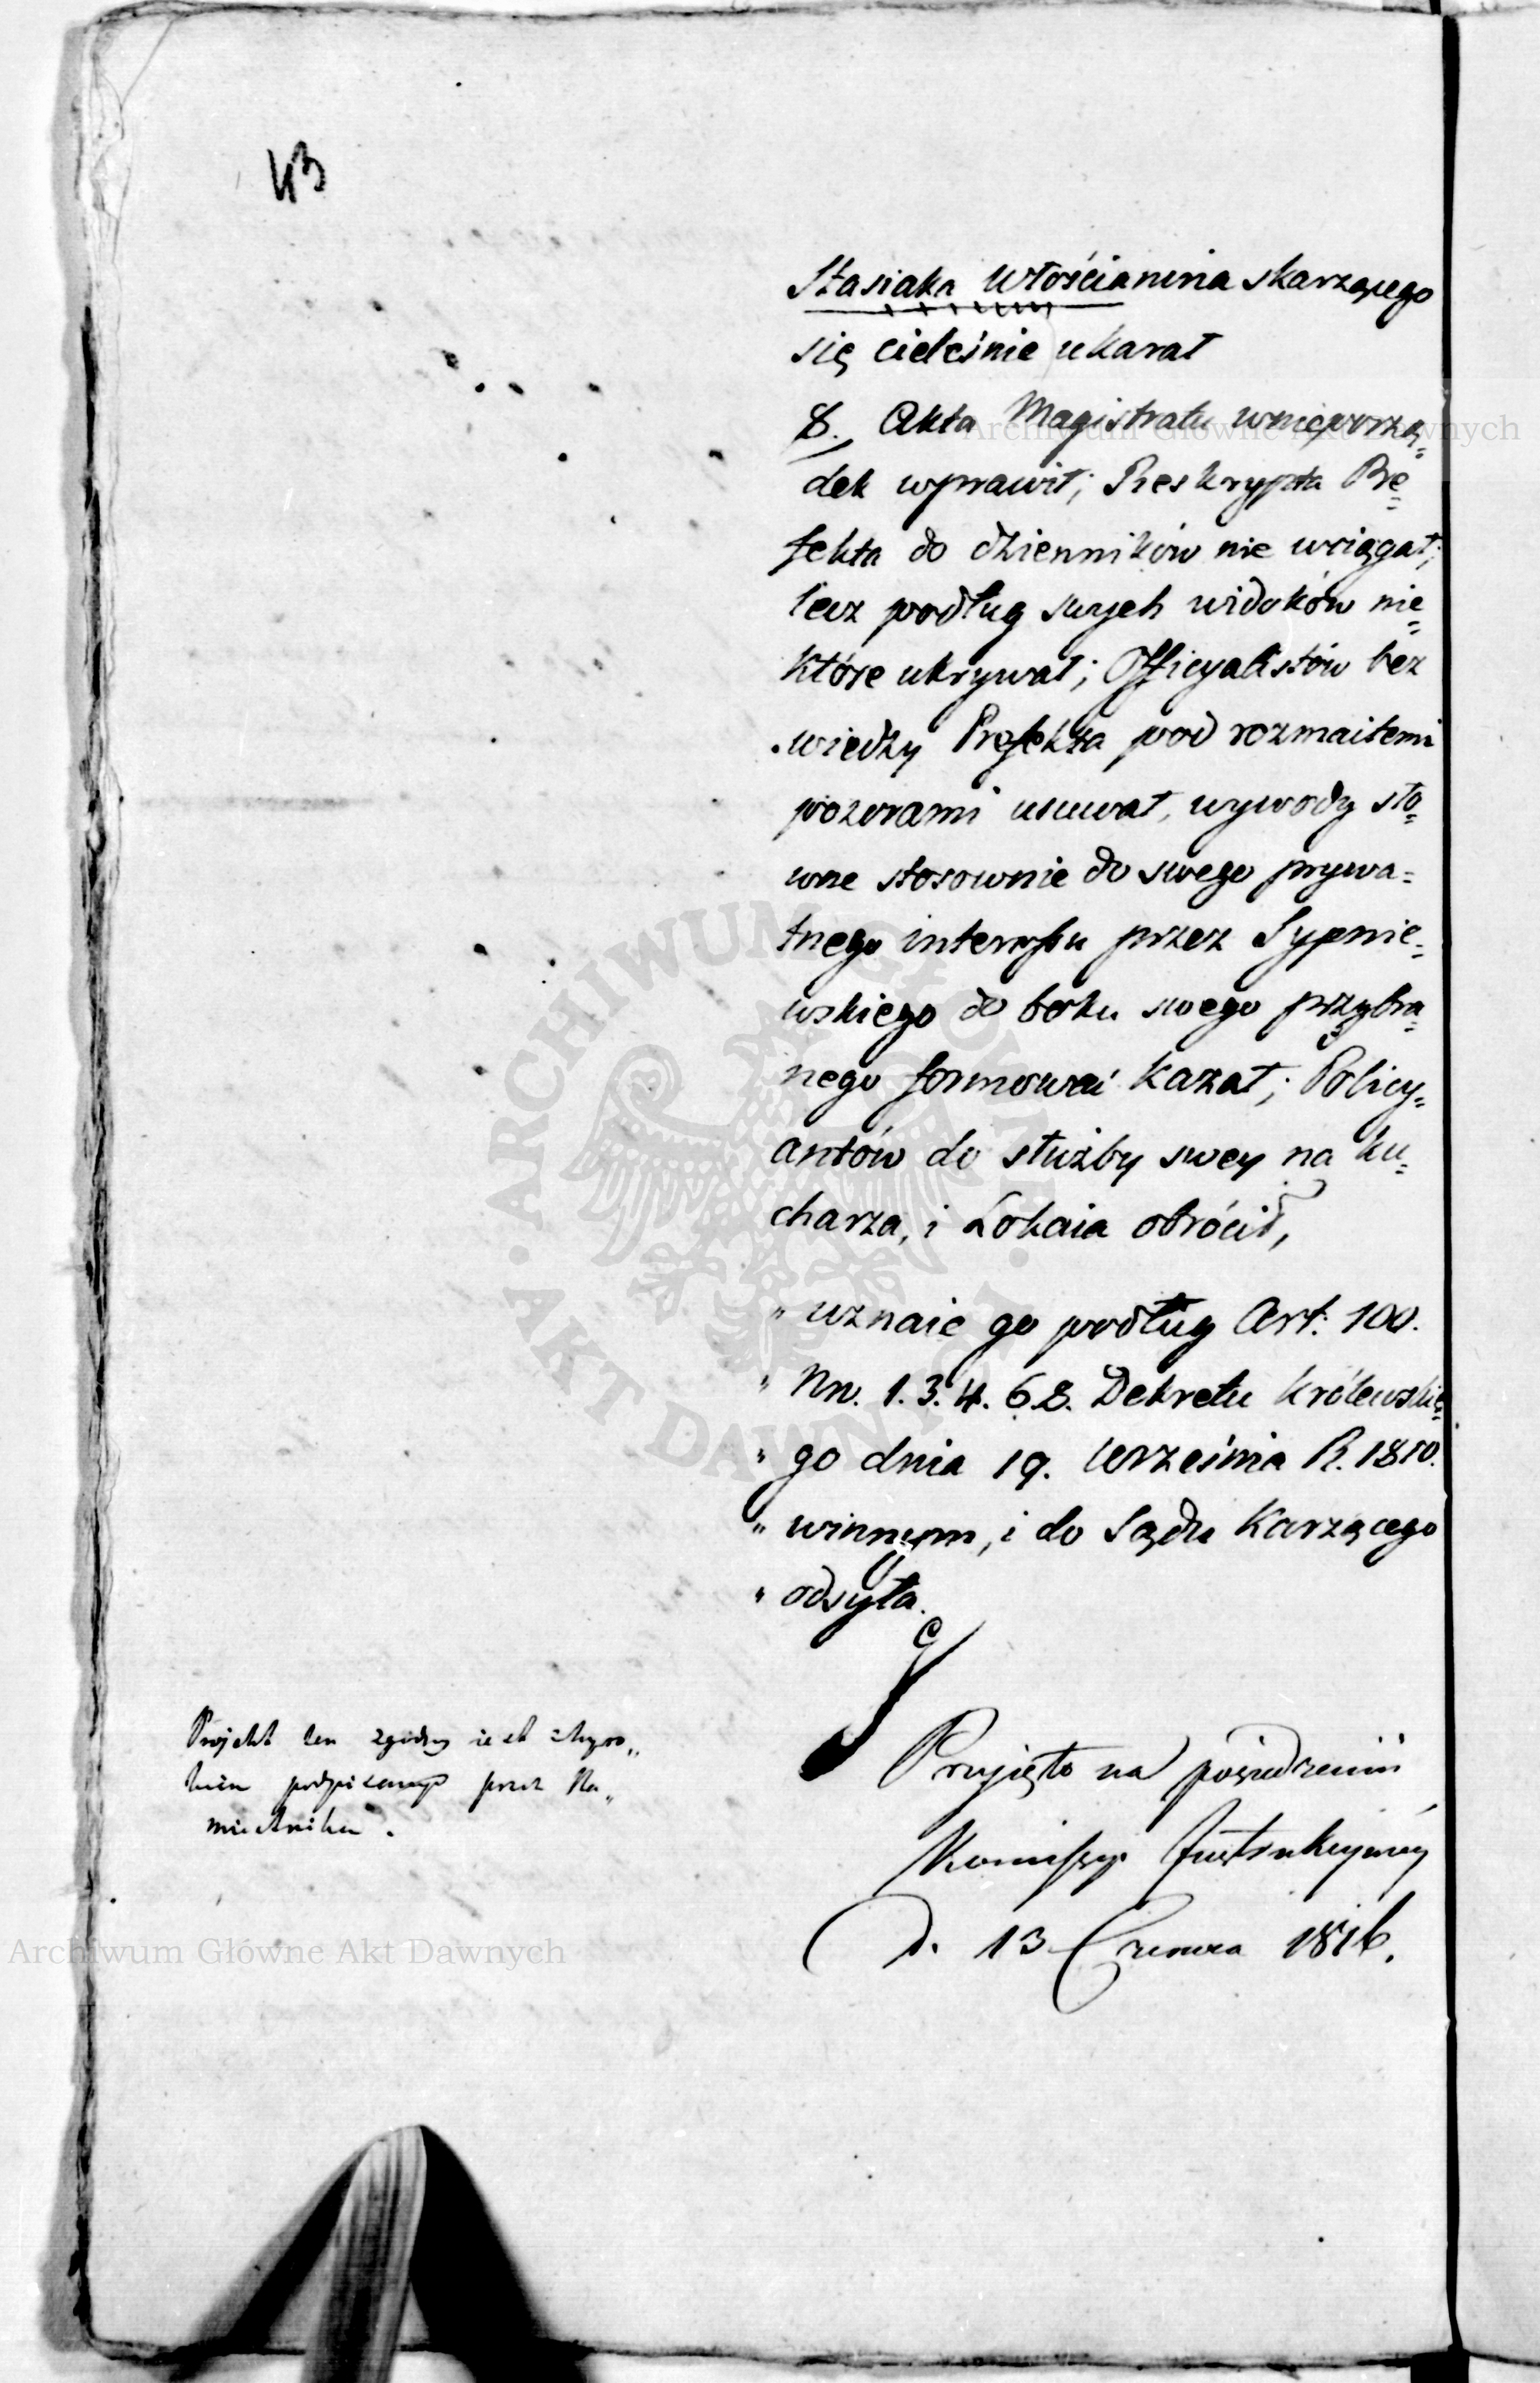 43
Stasiaka Włościanina skarzącego
się cieleśnie ukarał
8., Akta Magistratu wnieporzą=
dek wprawił; Reskrypta Pre=
fekta do dzienników nie wciągał;
lecz podług swych widoków nie=
które ukrywał; Officyalistów bez
wiedzy Prefekta pod rozmaitemi
pozorami usuwał, wywody sło=
wne stosownie do swego prywa=
tnego interessu przez Sypnie=
wskiego do boku swego przybra=
nego formować kazał; Policy=
antów do służby swey na ku=
charza, i Lokaia obrócił,
" uznaie go podług Art: 100.
" Nn. 1. 3. 4. 6. 8. Dekretu Królewskie=
" go dnia 19. Września R. 1810.
" winnym, i do Sądu Karzącego
" odsyła.
Projekt ten zgodny iest z
podpisanego przez Na„
miestnika.
Przyjęto na posiedzeniu
Komissyi Instrukcyiney
D. 13 Czerwca 1816.
Archiwum Główne Akt Dawnych
Archiwum Główne Akt Dawnych
ARCHIWUM GŁÓWNE · AKT DAWNYCH ·